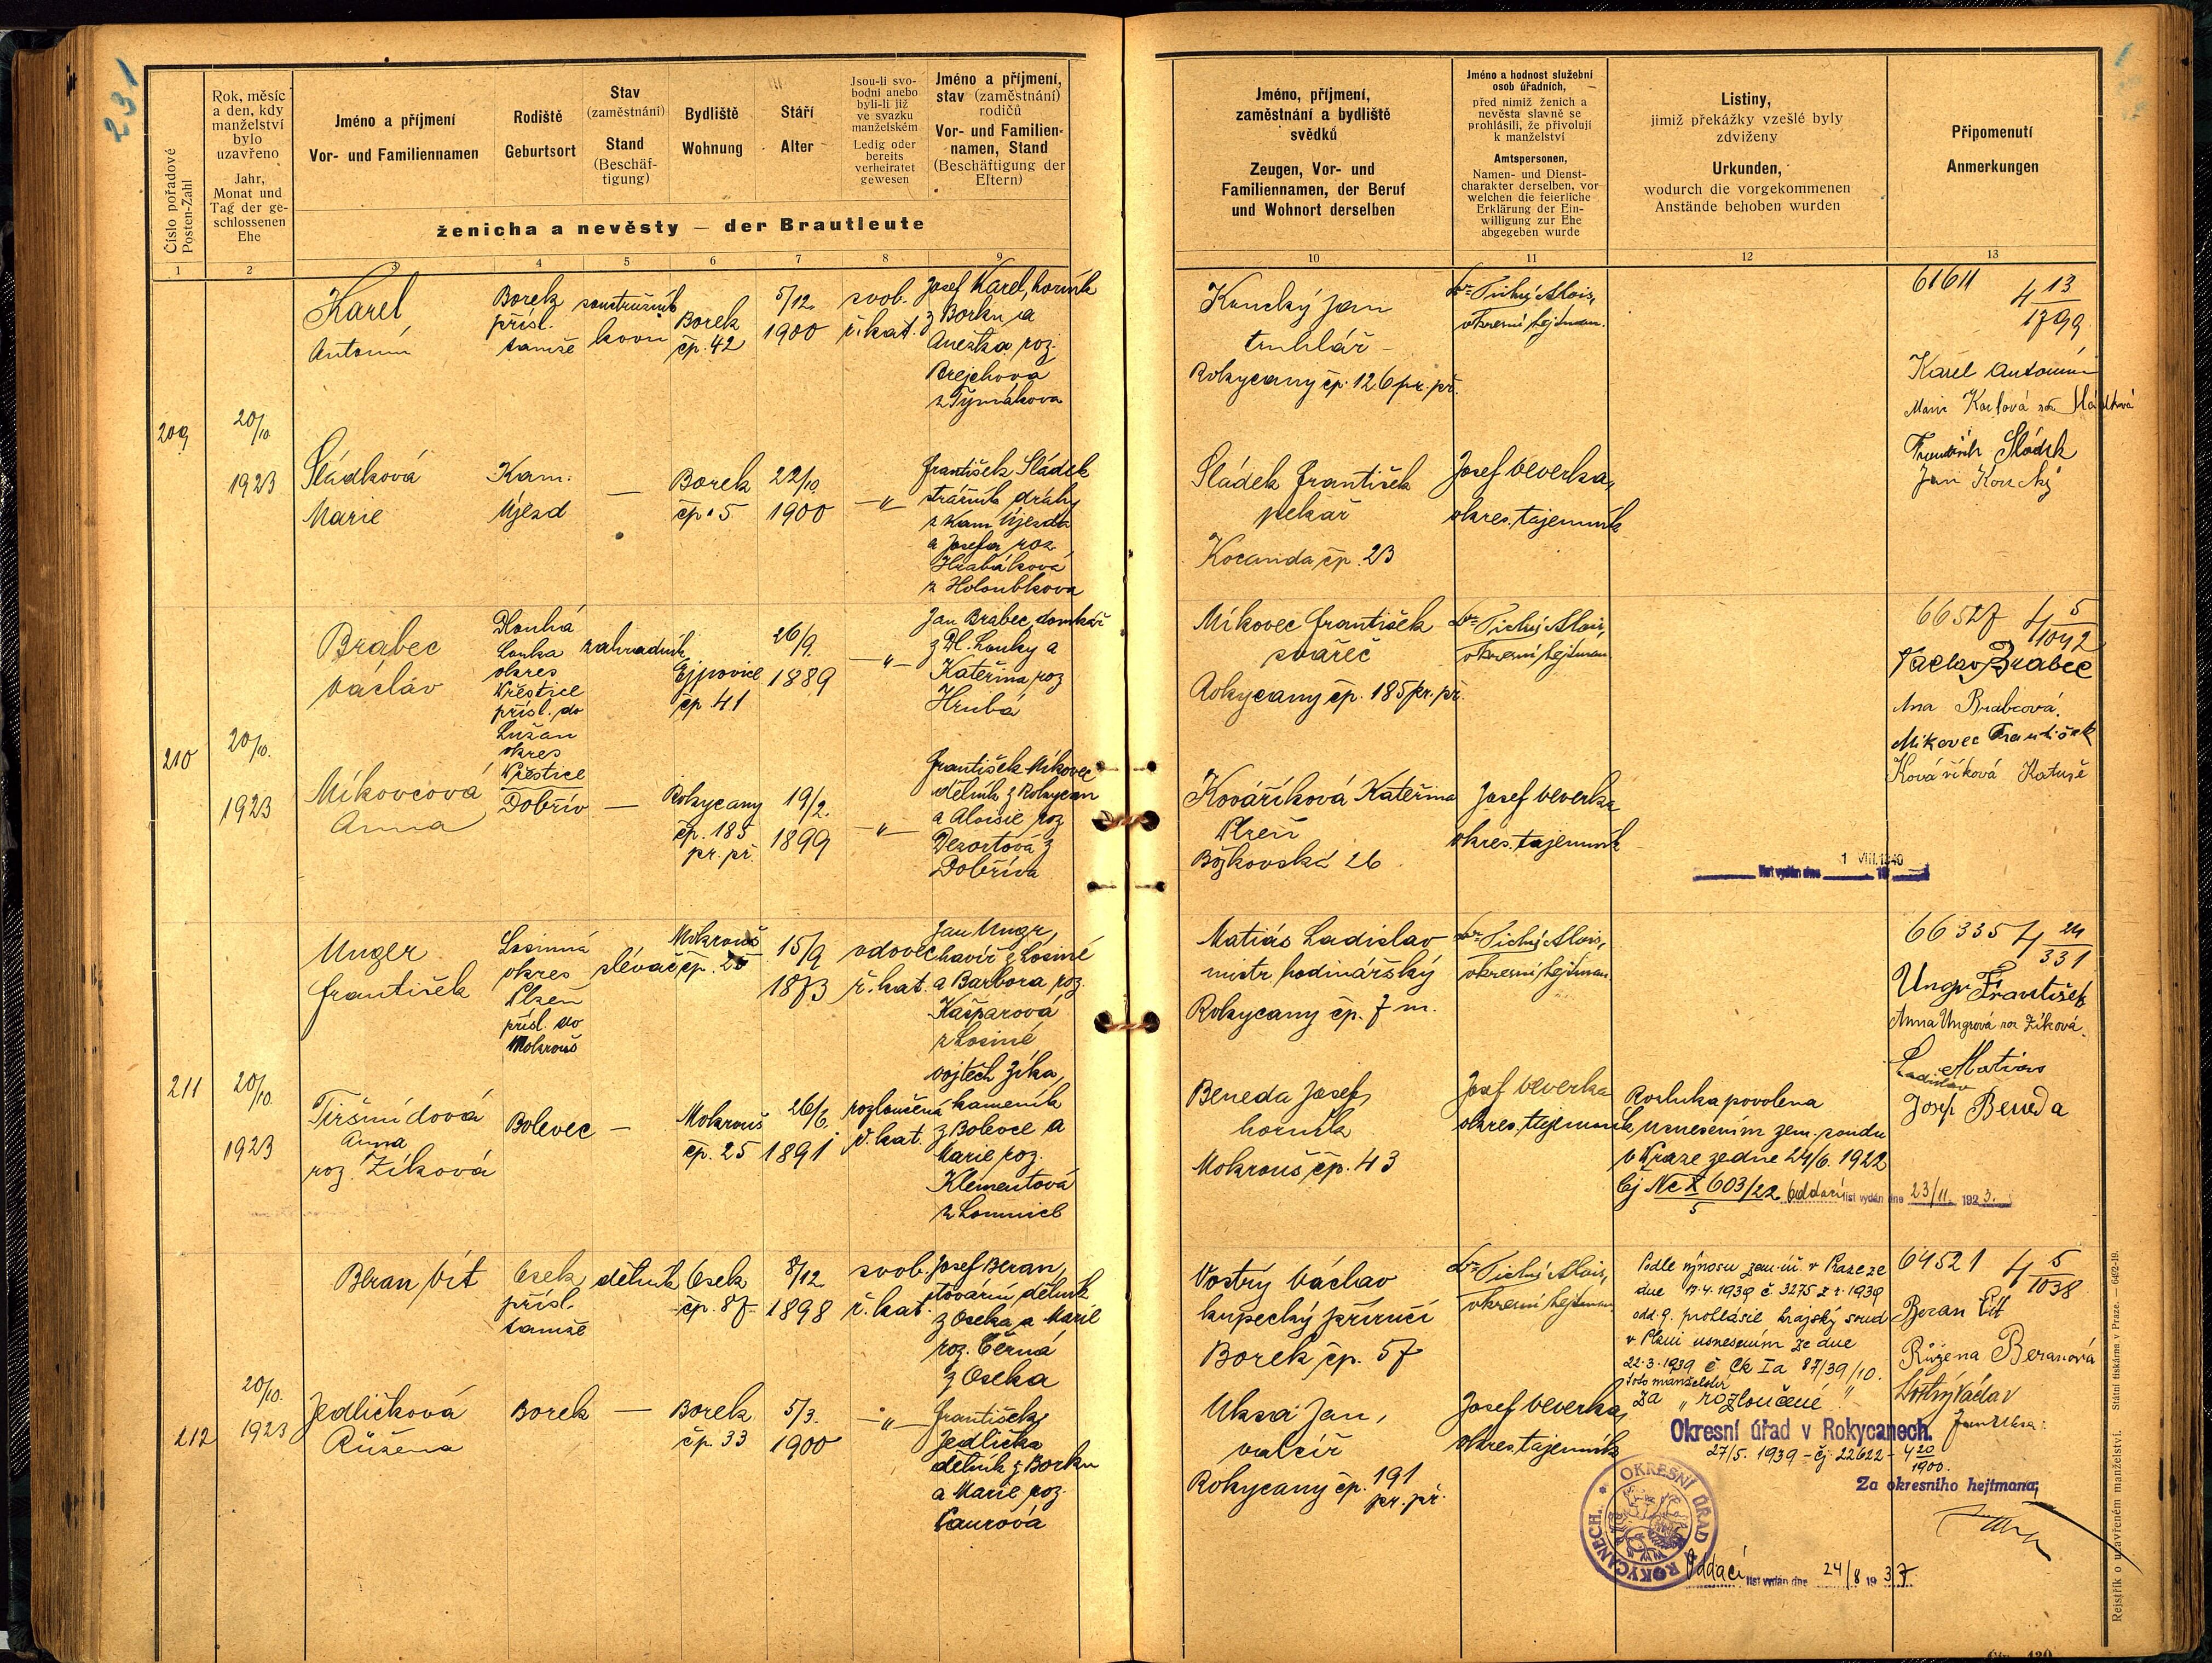 231
Číslo pořadové
Posten-Zahl
Rok, měsíc
a den, kdy
manželství
bylo
uzavřeno
Jahr,
Monat und
Tag der ge-
schlossenen
Ehe
Jméno a příjmení
Vor- und Familiennamen
Rodiště
Geburtsort
Stav
(zaměstnání)
Stand
(Beschäf-
tigung)
Bydliště
Wohnung
Stáří
Alter
Jsou-li svo-
bodni anebo
byli-li již
ve svazku
manželském
Ledig oder
bereits
verheiratet
gewesen
Jméno a příjmení,
stav (zaměstnání)
rodičů
Vor- und Familien-
namen, Stand
(Beschäftigung der
Eltern)
ženicha a nevěsty — der Brautleute
1 2 3 4 5 6 7 8 9
209
20/10
1923
Karel
Antonín
Borek
přísl.
tamže
soustružník
kovu
Borek
čp. 42
5/12.
1900
svob.
ř. kat.
Josef Karel, horník
z Borku a
Anežka roz.
Brejchova
z Tymákova
Sládková
Marie
Kam.
Újezd
—
Borek
čp. 5
22/10.
1900
—"—
František Sládek
strážník dráhy
z Kam. Újezda
a Josefa roz.
Hrabáková
z Holoubkova
210
20/10.
1923
Brabec
Václav
Dlouhá
Louka
okres
Přeštice
přísl. do
Lužan
okres
Přeštice
zahradník
Ejpovice
čp. 41
26/9.
1889
—"—
Jan Brabec, domkář
z Dl. Louky a
Kateřina roz
Hrubá
Míkovcová
Anna
Dobřív
—
Rokycany
čp. 185
pr. př.
19/2.
1899
—"—
František Míkovec
dělník z Rokycan
a Aloisie roz
Dezortová z
Dobříva
211
20/10.
1923
Unger
František
Losinná
okres
Plzeň
přísl. do
Mokrouš
slévač
Mokrouš
čp. 25
15/9
1873
vdovec
ř. kat.
Jan Ungr,
havíř z Losiné
a Barbora roz.
Kašparová
z Losiné
Tiršmídová
Anna
roz. Zíková
Bolevec
—
Mokrouš
čp. 25
26/6.
1891
rozloučená
ř. kat.
Vojtěch Zíka,
kameník
z Bolevce a
Marie roz.
Klementová
z Lomnice
212
20/10.
1923
Beran Vít
Osek
přísl.
tamže
dělník
Osek
čp. 87
8/12
1898
svob.
ř. kat.
Josef Beran,
tovární dělník
z Oseka a Marie
roz. Černá
z Oseka
Jedličková
Růžena
Borek
—
Borek
čp. 33
5/3.
1900
—"—
František
Jedlička
dělník z Borku
a Marie roz.
Vaurová
Jméno, příjmení,
zaměstnání a bydliště
svědků
Zeugen, Vor- und
Familiennamen, der Beruf
und Wohnort derselben
Jméno a hodnost služební
osob úřadních,
před nimiž ženich a
nevěsta slavně se
prohlásili, že přivolují
k manželství
Amtspersonen,
Namen- und Dienst-
charakter derselben, vor
welchen die feierliche
Erklärung der Ein-
willigung zur Ehe
abgegeben wurde
Listiny,
jimiž překážky vzešlé byly
zdviženy
Urkunden,
wodurch die vorgekommenen
Anstände behoben wurden
Připomenutí
Anmerkungen
10 11 12 13
Koucký Jan
truhlář
Rokycany čp. 126 pr. př.
Dr. Tichý Alois,
okresní hejtman.
61611 4 13/1799
Karel Antonín
Marie Karlová roz. Sládková
František Sládek
Jan Koucký
Sládek František
pekař
Kocanda čp. 23
Josef Veverka,
okres. tajemník
Míkovec František
svářeč
Rokycany čp. 185 pr. př.
Dr. Tichý Alois,
okresní hejtman
66527 4 5/1092
Václav Brabec
Ana Brabcová
Míkovec František
Kováříková Katuše
Kováříková Kateřina
Plzeň
Božkovská 26
Josef Veverka
okres. tajemník
list vydán dne 1 VIII. 1940
Matiás Ladislav
mistr hodinářský
Rokycany čp. 7 m.
Dr. Tichý Alois,
okresní hejtman
66335 4 24/331
Ungr František
Anna Ungrová roz. Zíková.
Matias
Ladislav
Josef Beneda
Beneda Josef,
horník
Mokrouš čp. 43
Josef Veverka
okres. tajemník
Rozluka povolena
usnesením zem. soudu
v Praze ze dne 24/6. 1922
čj Nc X 603/22/5 Oddací list vydán dne 23/11. 1923.
Vostrý Václav
kupecký příručí
Borek čp. 57
Dr. Tichý Alois,
okresní hejtman
Podle výnosu zem. úř. v Praze ze
dne 17.4.1939 č. 3275 z r. 1939
odd. 9. prohlásil krajský soud
v Plzni usnesením ze dne
22.3.1939 č. Ck Ia 87/39/10.
toto manželství
za „rozloučené"
64521 4 5/1038
Beran Vít
Růžena Beranová
Vostrý Václav
Jan Uksa
Uksa Jan,
valcíř
Rokycany čp. 191
pr. př.
Josef Veverka,
okres. tajemník
Okresní úřad v Rokycanech.
27/5. 1939 - čj. 22622 - 4 20/1900.
Za okresního hejtmana:
OKRESNÍ ÚŘAD V ROKYCANECH.
Oddací list vydán dne 24/8 1937
Rejstřík o uzavřeném manželství. Státní tiskárna v Praze. — 6492-19.